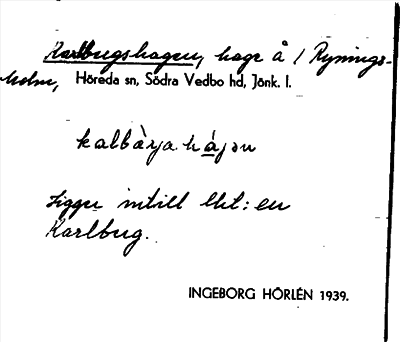 Karlbergshagen, hage å 1 Rynings-
holm, Höreda sn, Södra Vedbo hd, Jönk. l.
kalbàrja hágən
Ligger intill lht: en
Karlberg.
INGEBORG HÖRLÉN 1939.